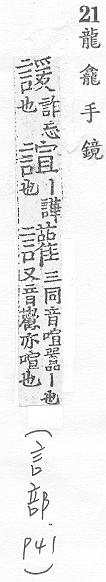 21 龍龕手鏡
諼詐忘也諠丨譁也讙三同音喧囂丨也又音歡亦喧也
(言部. P41)